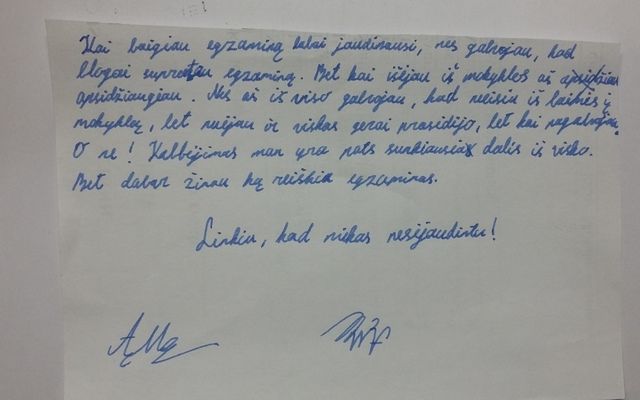 Kai baigiau egzaminą labai jaudinausi, nes galvojau, kad
blogai supratau egzaminą. Bet kai išėjau iš mokyklos aš
apsidžiaugiau. Nes aš iš viso galvojau, kad neisiu iš laimės į
mokyklą, bet nuėjau ir viskas gerai prasidėjo, bet kai pagalvojau
O ne! Kalbėjimas man yra pats sunkiausias dalis iš visko.
Bet dabar žinau ką reiškia egzaminas.
Linkiu, kad niekas nesijaudintu!